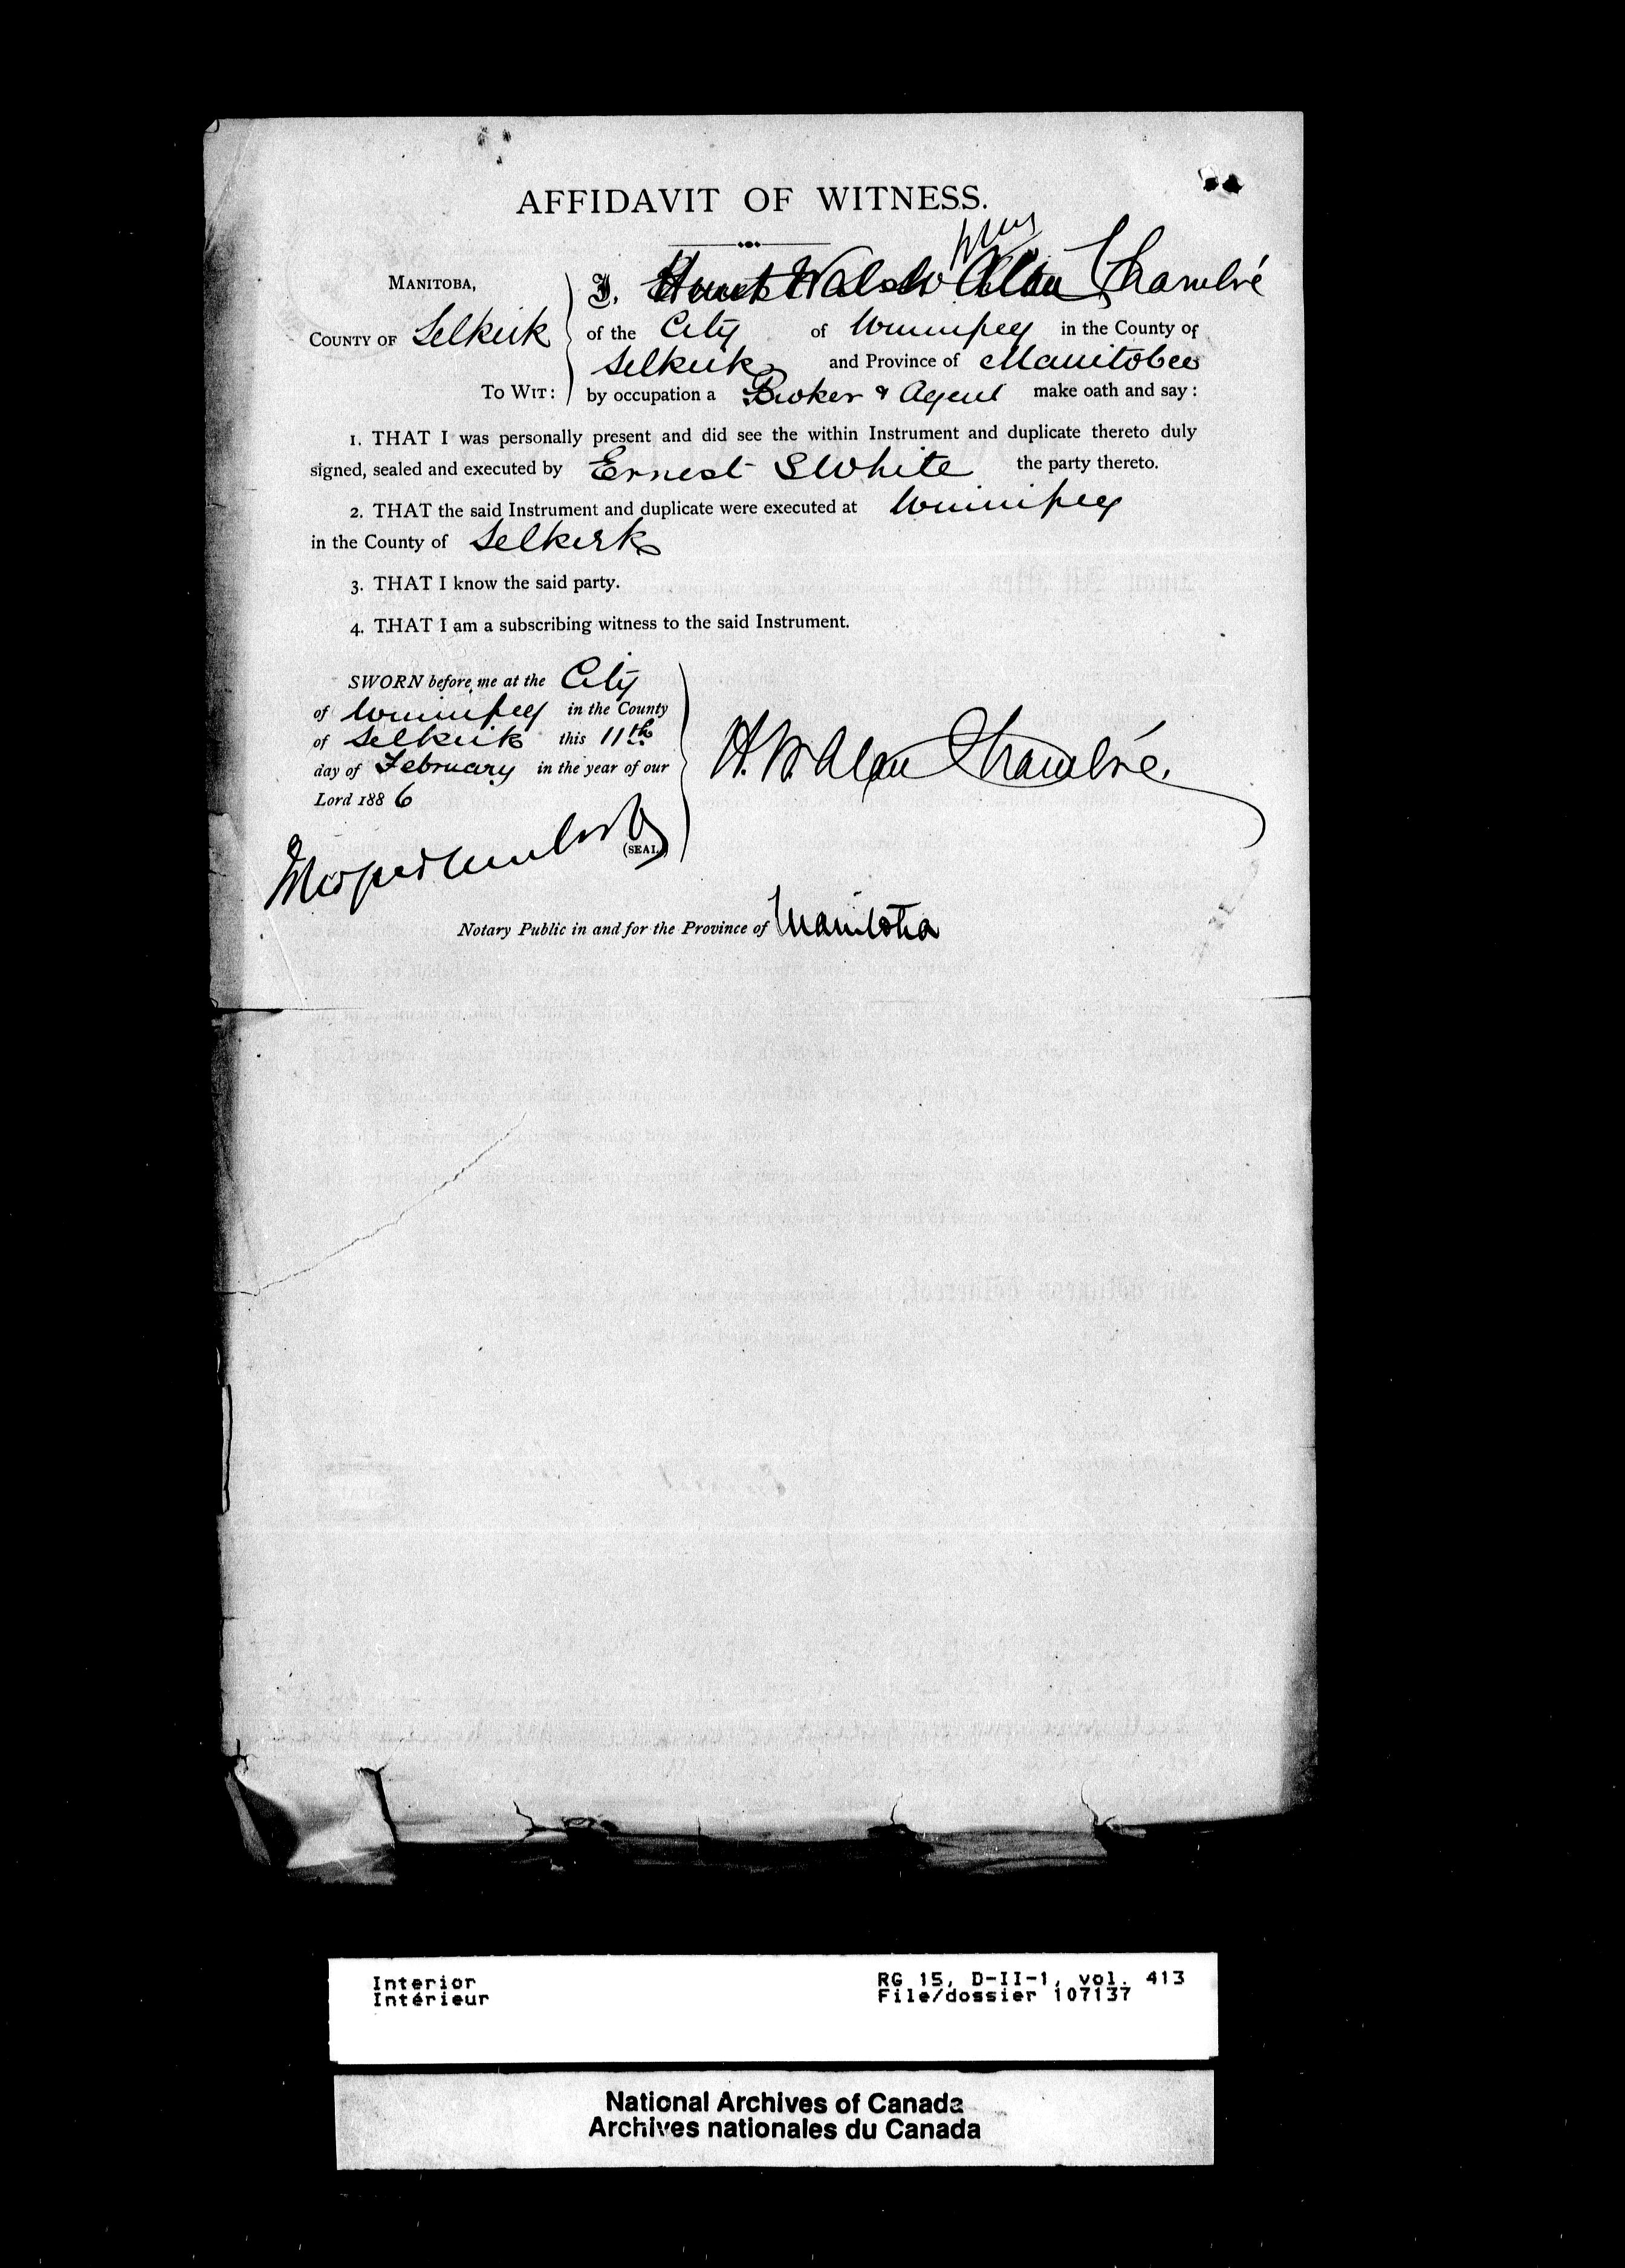 AFFIDAVIT OF WITNESS.
MANITOBA,
COUNTY OF Selkirk
TO WIT:
I, Hunt Walsh Alan Chambré
of the City of Winnipeg in the County of
Selkirk and Province of Manitoba
by occupation a Broker & Agent make oath and say:
1. THAT I was personally present and did see the within Instrument and duplicate thereto duly
signed, sealed and executed by Ernest S White the party thereto.
2. THAT the said Instrument and duplicate were executed at Winnipeg
in the County of Selkirk
3. THAT I know the said party.
4. THAT I am a subscribing witness to the said Instrument.
SWORN before me at the City
of Winnipeg in the County
of Selkirk this 11th
day of February in the year of our
Lord 1886
H. W. Alan Chambré.
(SEAL)
Notary Public in and for the Province of Manitoba
Interior
Intérieur
RG 15, D-II-1, vol. 413
File/dossier 107137
National Archives of Canada
Archives nationales du Canada